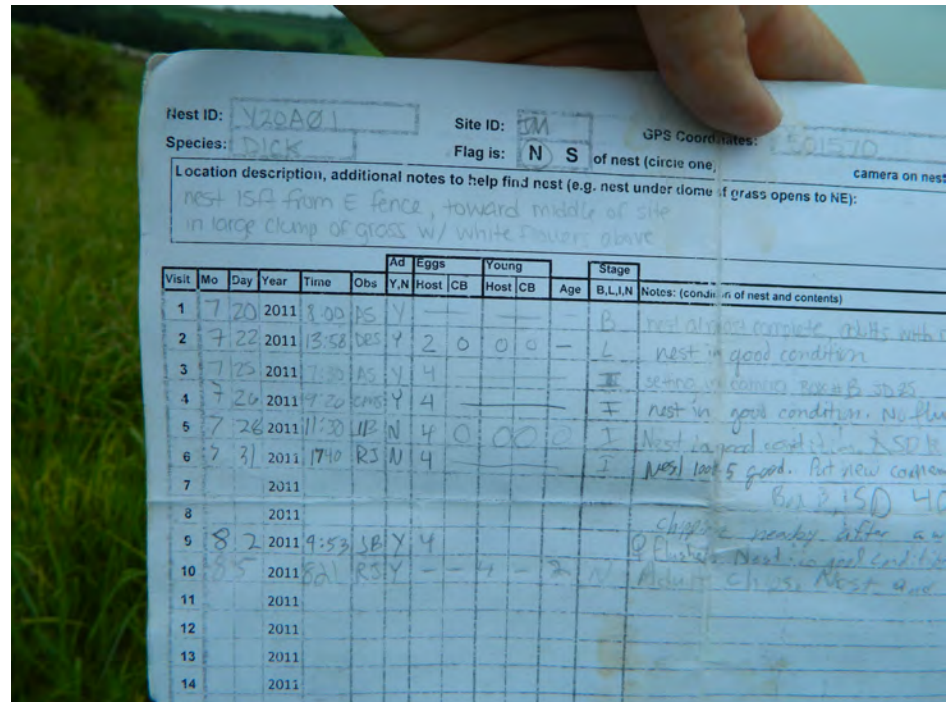 Nest ID: Y20AØ1 Site ID: JM GPS Coordinates: 501570
Species: DICK Flag is: N S of nest (circle one, camera on nest
Location description, additional notes to help find nest (e.g. nest under dome of grass opens to NE):
nest 15ft from E fence, toward middle of site
in large clump of grass w/ white flowers above
Ad Eggs Young Stage
Visit Mo Day Year Time Obs Y,N Host CB Host CB Age B,L,I,N Notes: (condition of nest and contents)
1 7 20 2011 8:00 AS Y — — B nest almost complete, adults with
2 7 22 2011 13:58 DES Y 2 0 0 0 — L nest in good condition
3 7 25 2011 7:30 AS Y 4 — I setting up camera Box # B SD 25
4 7 26 2011 9:20 CMS Y 4 — I nest in good condition. No
5 7 28 2011 11:30 N 4 0 0 0 0 I Nest in good condition.
6 7 31 2011 1740 RJ N 4 — I Nest looks good. Put new camera
7 2011 SD 40
8 2011 chipping nearby after a
9 8 2 2011 9:53 JB Y 4 ♀ flushed. Nest in good condition
10 8 5 2011 821 RJ Y - - 4 - 2 N Adult chips. Nest and
11 2011
12 2011
13 2011
14 2011